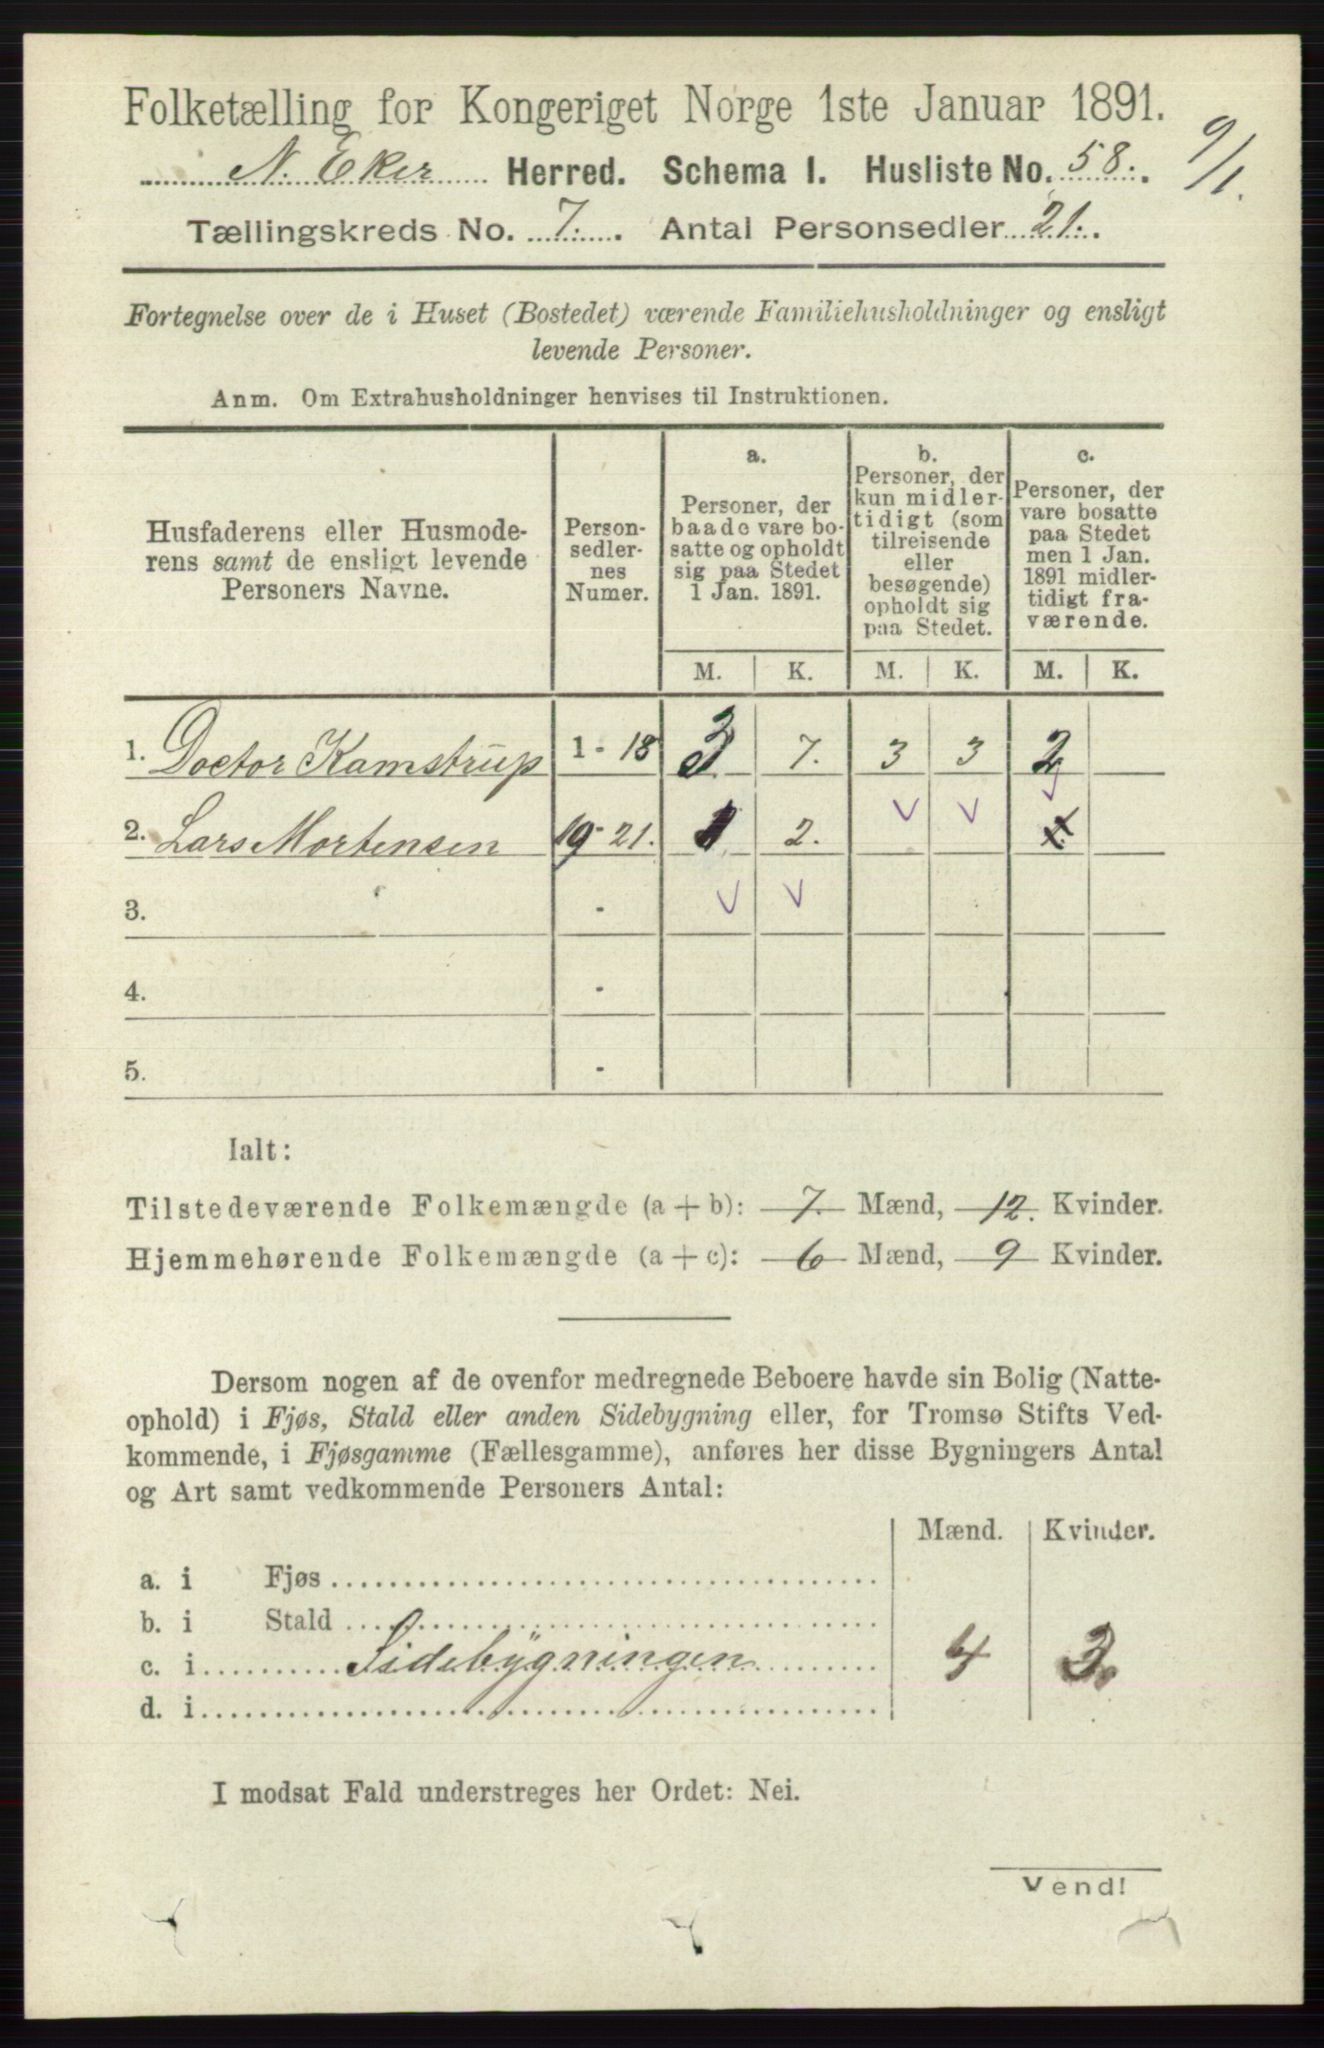 Folketælling for Kongeriget Norge 1ste Januar 1891.
N. Eker Herred. Schema I. Husliste No. 58.
9/1.
Tællingskreds No. 7. Antal Personsedler 21.
Fortegnelse over de i Huset (Bostedet) værende Familiehusholdninger og ensligt
levende Personer.
Anm. Om Extrahusholdninger henvises til Instruktionen.
Husfaderens eller Husmode-
rens samt de ensligt levende
Personers Navne.
Person-
sedler-
nes
Numer.
a.
Personer, der
baade vare bo-
satte og opholdt
sig paa Stedet
1 Jan. 1891.
b.
Personer, der
kun midler-
tidigt (som
tilreisende
eller
besøgende)
opholdt sig
paa Stedet.
c.
Personer, der
vare bosatte
paa Stedet
men 1 Jan.
1891 midler-
tidigt fra-
værende.
M. K. M. K. M. K.
1. Doctor Kamstrup 1 - 18 3 7. 3 3 2
2. Lars Mortensen 19 - 21. 1 2.
3. -
4. -
5. -
Ialt:
Tilstedeværende Folkemængde (a + b): 7. Mænd, 12. Kvinder.
Hjemmehørende Folkemængde (a + c): 6 Mænd, 9 Kvinder.
Dersom nogen af de ovenfor medregnede Beboere havde sin Bolig (Natte-
ophold) i Fjøs, Stald eller anden Sidebygning eller, for Tromsø Stifts Ved-
kommende, i Fjøsgamme (Fællesgamme), anføres her disse Bygningers Antal
og Art samt vedkommende Personers Antal:
Mænd. Kvinder.
a. i Fjøs
b. i Stald
c. i Sidebygningen 4 3.
d. i
I modsat Fald understreges her Ordet: Nei.
Vend!